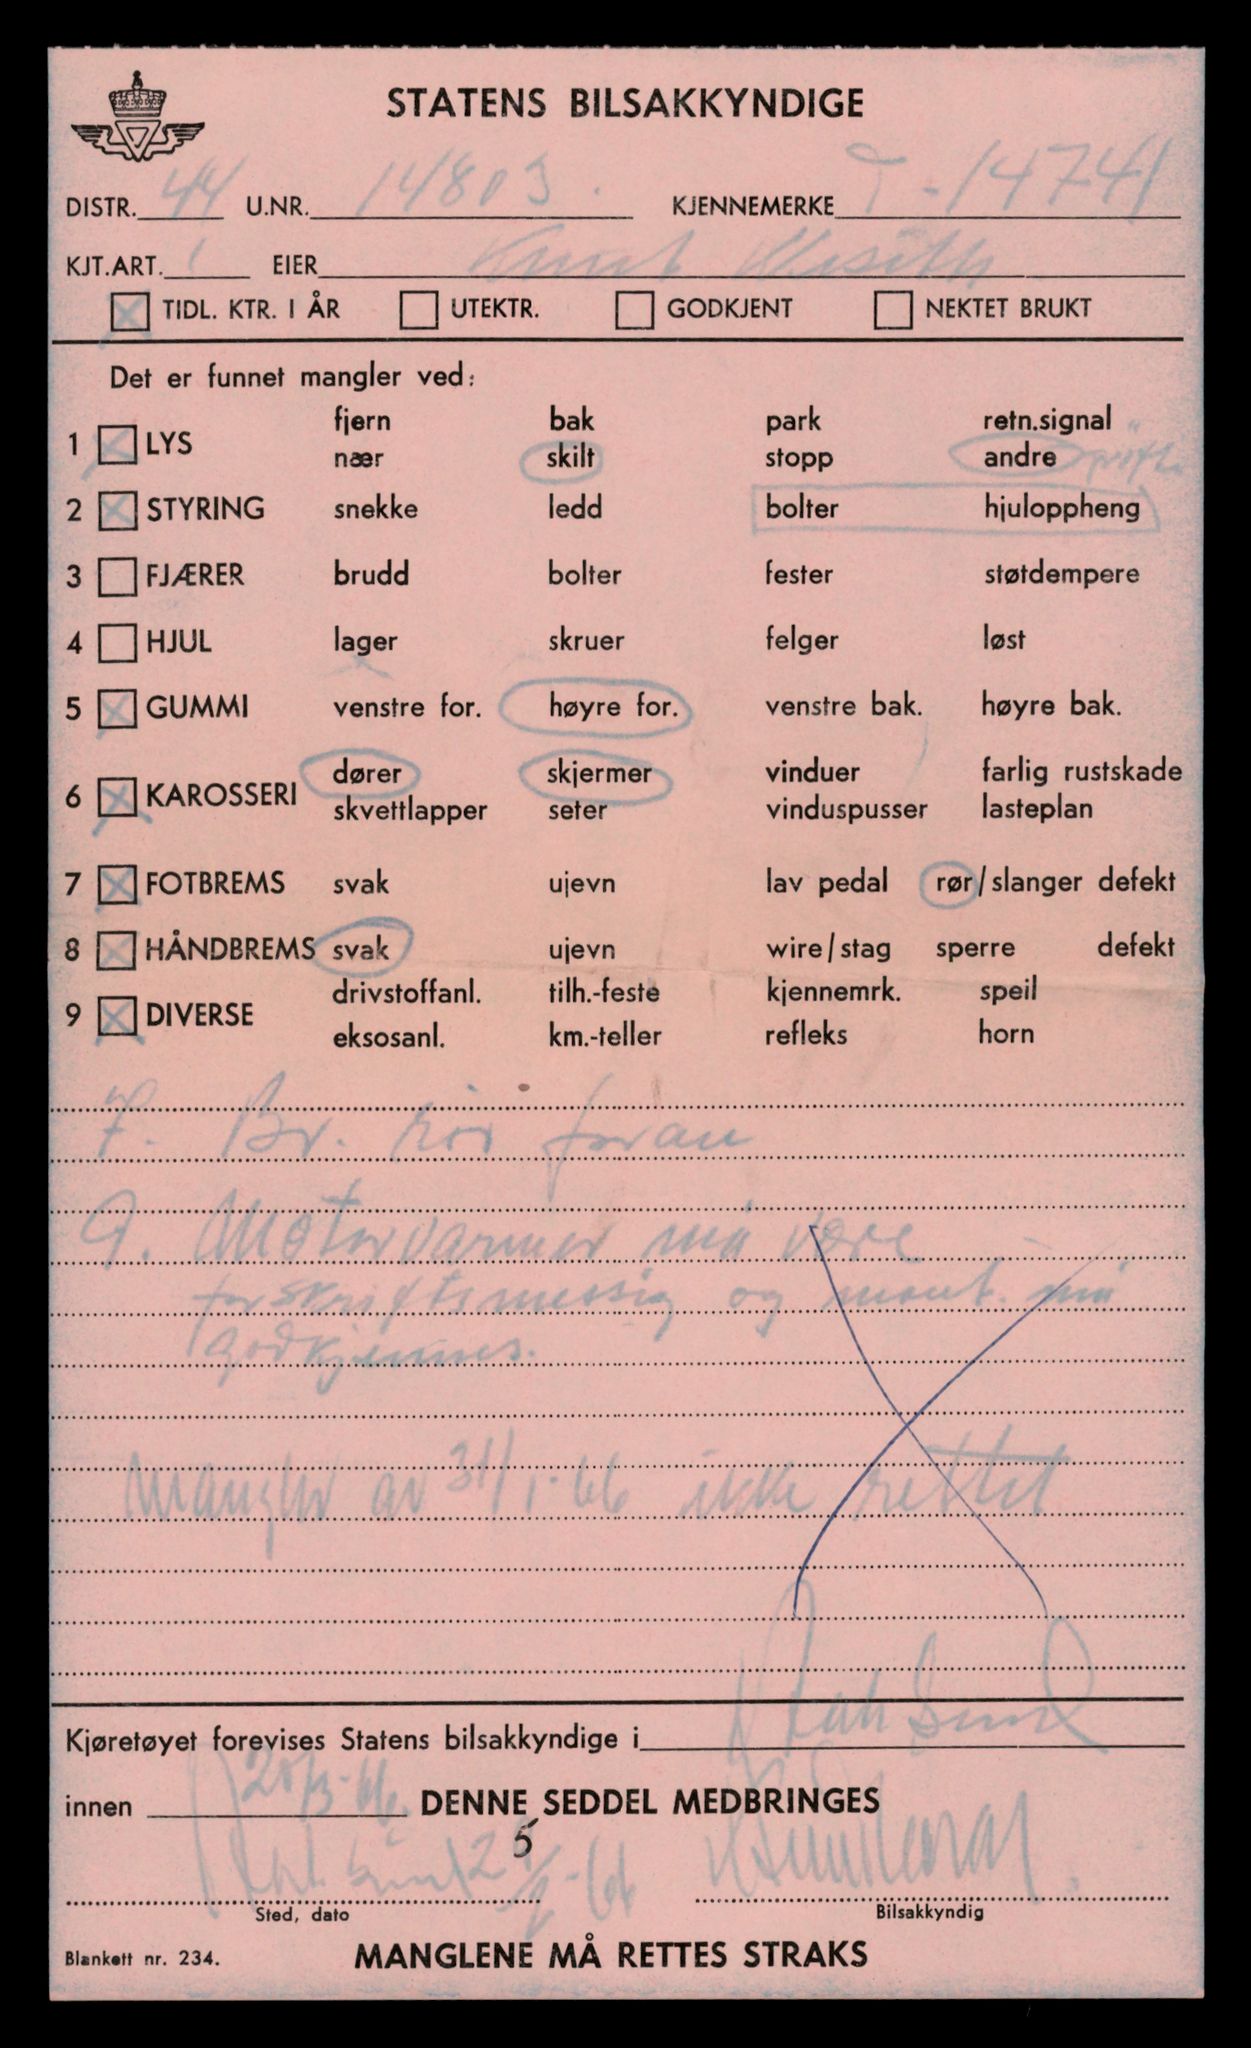 STATENS BILSAKKYNDIGE
DISTR. 44 U.NR. 14803. KJENNEMERKE T-14741
KJT.ART. 1 EIER Knut
TIDL. KTR. I ÅR UTEKTR. GODKJENT NEKTET BRUKT
Det er funnet mangler ved:
fjern bak park retn.signal
1 LYS
nær skilt stopp andre
2 STYRING snekke ledd bolter hjuloppheng
3 FJÆRER brudd bolter fester støtdempere
4 HJUL lager skruer felger løst
5 GUMMI venstre for. høyre for. venstre bak. høyre bak.
dører skjermer vinduer farlig rustskade
6 KAROSSERI
skvettlapper seter vinduspusser lasteplan
7 FOTBREMS svak ujevn lav pedal rør/slanger defekt
8 HÅNDBREMS svak ujevn wire/stag sperre defekt
drivstoffanl. tilh.-feste kjennemrk. speil
9 DIVERSE
eksosanl. km.-teller refleks horn
7. Br. rør foran
9. Motorvarmer må være
forskriftsmessig og mont. må
godkjennes.
Mangler av 31/1-66 ikke rettet
Kjøretøyet forevises Statens bilsakkyndige i
innen 20/3-66 DENNE SEDDEL MEDBRINGES
5
Sted, dato Bilsakkyndig
Blankett nr. 234. MANGLENE MÅ RETTES STRAKS